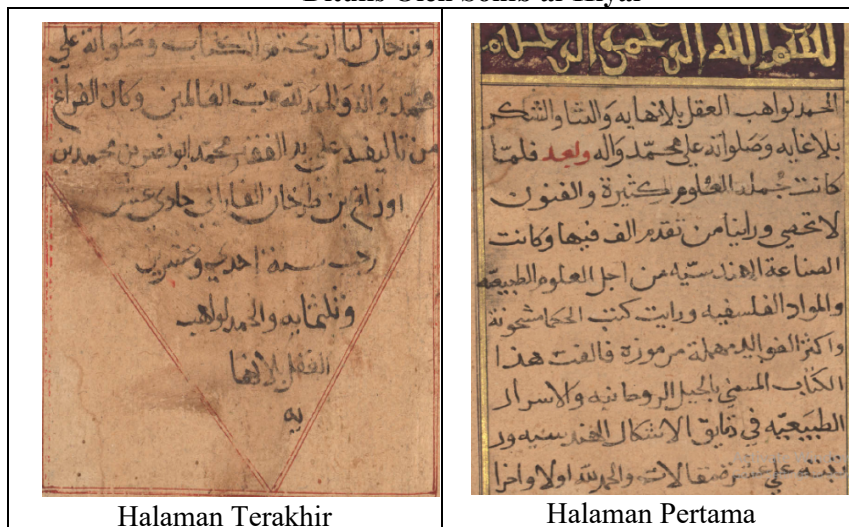 وقد حان لنا ان نختم الكتاب وصلواته علي
محمد واله والحمد لله رب العالمين وكان الفراغ
من تاليفه علي يد الفقير محمد ابو نصر بن محمد بن
اوزلغ بن طرخان الفارابي حادي عشر
رجب سنة احدي وعشرين
وثلثمايه والحمد لواهب
العقل بلا نها
يه
Halaman Terakhir
بسم الله الرحمن الرحيم
الحمد لواهب العقل بلا نهايه والثنا والشكر
بلا غايه وصلواته علي محمد واله وبعد فلما
كانت جملة العلوم كثيرة والفنون
لا تحصي وراينا من تقدم الف فيها وكانت
الصناعة الهندسيه من اجل العلوم الطبيعيه
والمواد الفلسفيه ورايت كتب الحكما مشحونة
واكثر الفوايد مهملة مرموزة فالفت هذا
الكتاب المسمي بالحيل الروحانيه والاسرار
الطبيعيه في دقايق الاشكال الهندسيه ور
تبته علي عشر مقالات والحمد لله اولا واخرا
Halaman Pertama